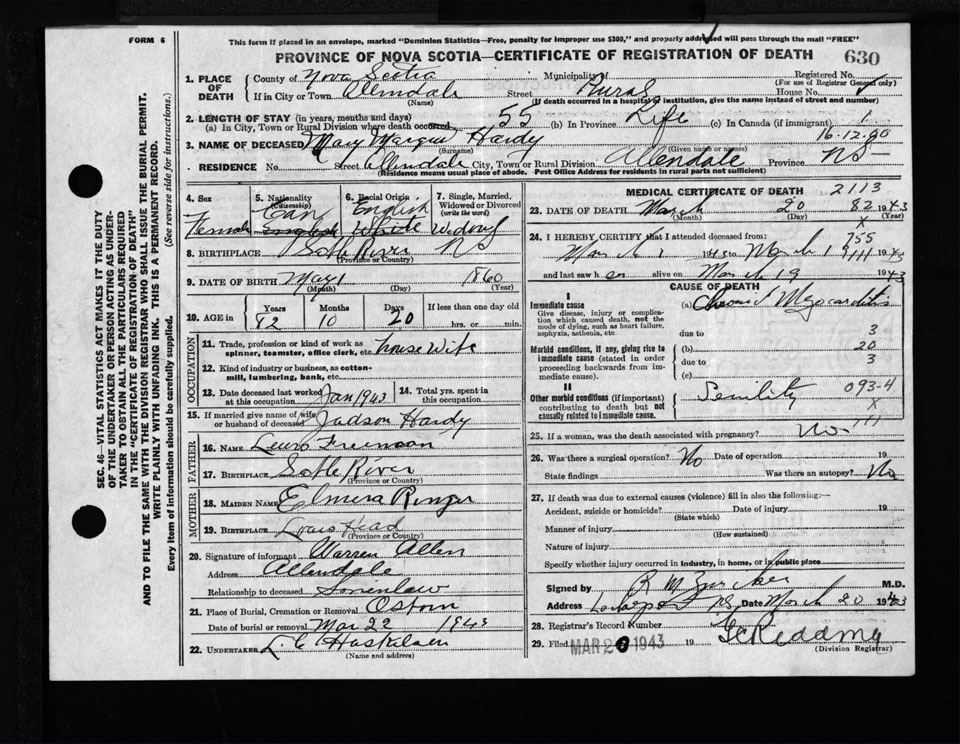 FORM 6
This form if placed in an envelope, marked "Dominion Statistics—Free, penalty for improper use $300," and properly addressed will pass through the mail "FREE"
PROVINCE OF NOVA SCOTIA—CERTIFICATE OF REGISTRATION OF DEATH
630
1. PLACE OF DEATH
County of Nova Scotia Municipality Rural Registered No.
(For use of Registrar General only)
If in City or Town Allendale Street House No.
(Name) (If death occurred in a hospital or institution, give the name instead of street and number)
2. LENGTH OF STAY (in years, months and days)
(a) In City, Town or Rural Division where death occurred 55 (b) In Province Life (c) In Canada (if immigrant)
16-12-90
3. NAME OF DECEASED Mary Hardy
(Surname) (Given name or names)
RESIDENCE No. Street Allendale City, Town or Rural Division Allendale Province NS
(Residence means usual place of abode. Post Office Address for residents in rural parts not sufficient)
4. Sex Female
5. Nationality (Citizenship) Can English
6. Racial Origin English White
7. Single, Married, Widowed or Divorced (write the word)
8. BIRTHPLACE Sable River NS
(Province or Country)
9. DATE OF BIRTH May 1 1860
(Month) (Day) (Year)
10. AGE in Years Months Days If less than one day
82 10 20 hrs. or min.
OCCUPATION
11. Trade, profession or kind of work as spinner, teamster, office clerk, etc. House Wife
12. Kind of industry or business, as cotton-mill, lumbering, bank, etc.
13. Date deceased last worked at this occupation Jan 1943
14. Total yrs. spent in this occupation
15. If married give name of wife or husband of deceased Judson Hardy
FATHER
16. NAME Freeman
17. BIRTHPLACE Sable River
(Province or Country)
MOTHER
18. MAIDEN NAME Elmira Ringer
19. BIRTHPLACE Louis Head
(Province or Country)
20. Signature of informant Warren Allen
Address Allendale
Relationship to deceased Soninlaw
21. Place of Burial, Cremation or Removal
Date of burial or removal Mar 22 1943
22. UNDERTAKER L. C
(Name and address)
MEDICAL CERTIFICATE OF DEATH 2113
23. DATE OF DEATH March 20 82 1943
(Month) (Day) (Year)
X
24. I HEREBY CERTIFY that I attended deceased from: 755
March 1 1943 to March 19 1943
and last saw her alive on March 19 1943
CAUSE OF DEATH
I
Immediate cause
Give disease, injury or complication which caused death, not the mode of dying, such as heart failure, asphyxia, asthenia, etc.
(a) Chronic Myocarditis
due to 3
Morbid conditions, if any, giving rise to immediate cause (stated in order proceeding backwards from immediate cause).
(b) 20
due to 3
(c)
II
Other morbid conditions (if important) contributing to death but not causally related to immediate cause.
Senility 093-4
X
111
25. If a woman, was the death associated with pregnancy? No
26. Was there a surgical operation? No Date of operation 19
State findings Was there an autopsy? No
27. If death was due to external causes (violence) fill in also the following:—
Accident, suicide or homicide? Date of injury 19
(State which)
Manner of injury
(How sustained)
Nature of injury
Specify whether injury occurred in industry, in home, or in public place
Signed by R M Zwicker M.D.
Address NS Date March 20 1943
28. Registrar's Record Number
29. Filed MAR 20 1943
(Division Registrar)
SEC. 46—VITAL STATISTICS ACT MAKES IT THE DUTY
OF THE UNDERTAKER OR PERSON ACTING AS UNDER-
TAKER TO OBTAIN ALL THE PARTICULARS REQUIRED
IN THE "CERTIFICATE OF REGISTRATION OF DEATH"
AND TO FILE THE SAME WITH THE DIVISION REGISTRAR WHO SHALL ISSUE THE BURIAL PERMIT.
WRITE PLAINLY WITH UNFADING INK. THIS IS A PERMANENT RECORD.
Every item of information should be carefully supplied. (See reverse side for instructions.)